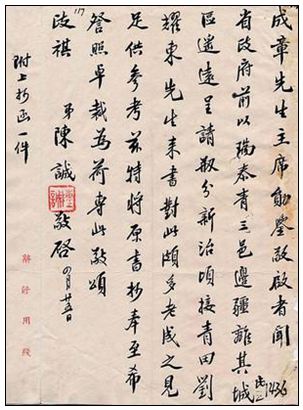 成章先生主席勛鑒敬啟者聞
省政府前以瑞泰青三邑邊疆離其城
區遙遠呈請分新治頃接青田劉
耀東先生來書對此頗多老成之見
足供參考茲特將原書抄奉至希
詧照卓裁為荷專此敬頌
政祺 弟陳誠敬啟 四月廿五日
附上抄函一件
辭修用牋
1436
117